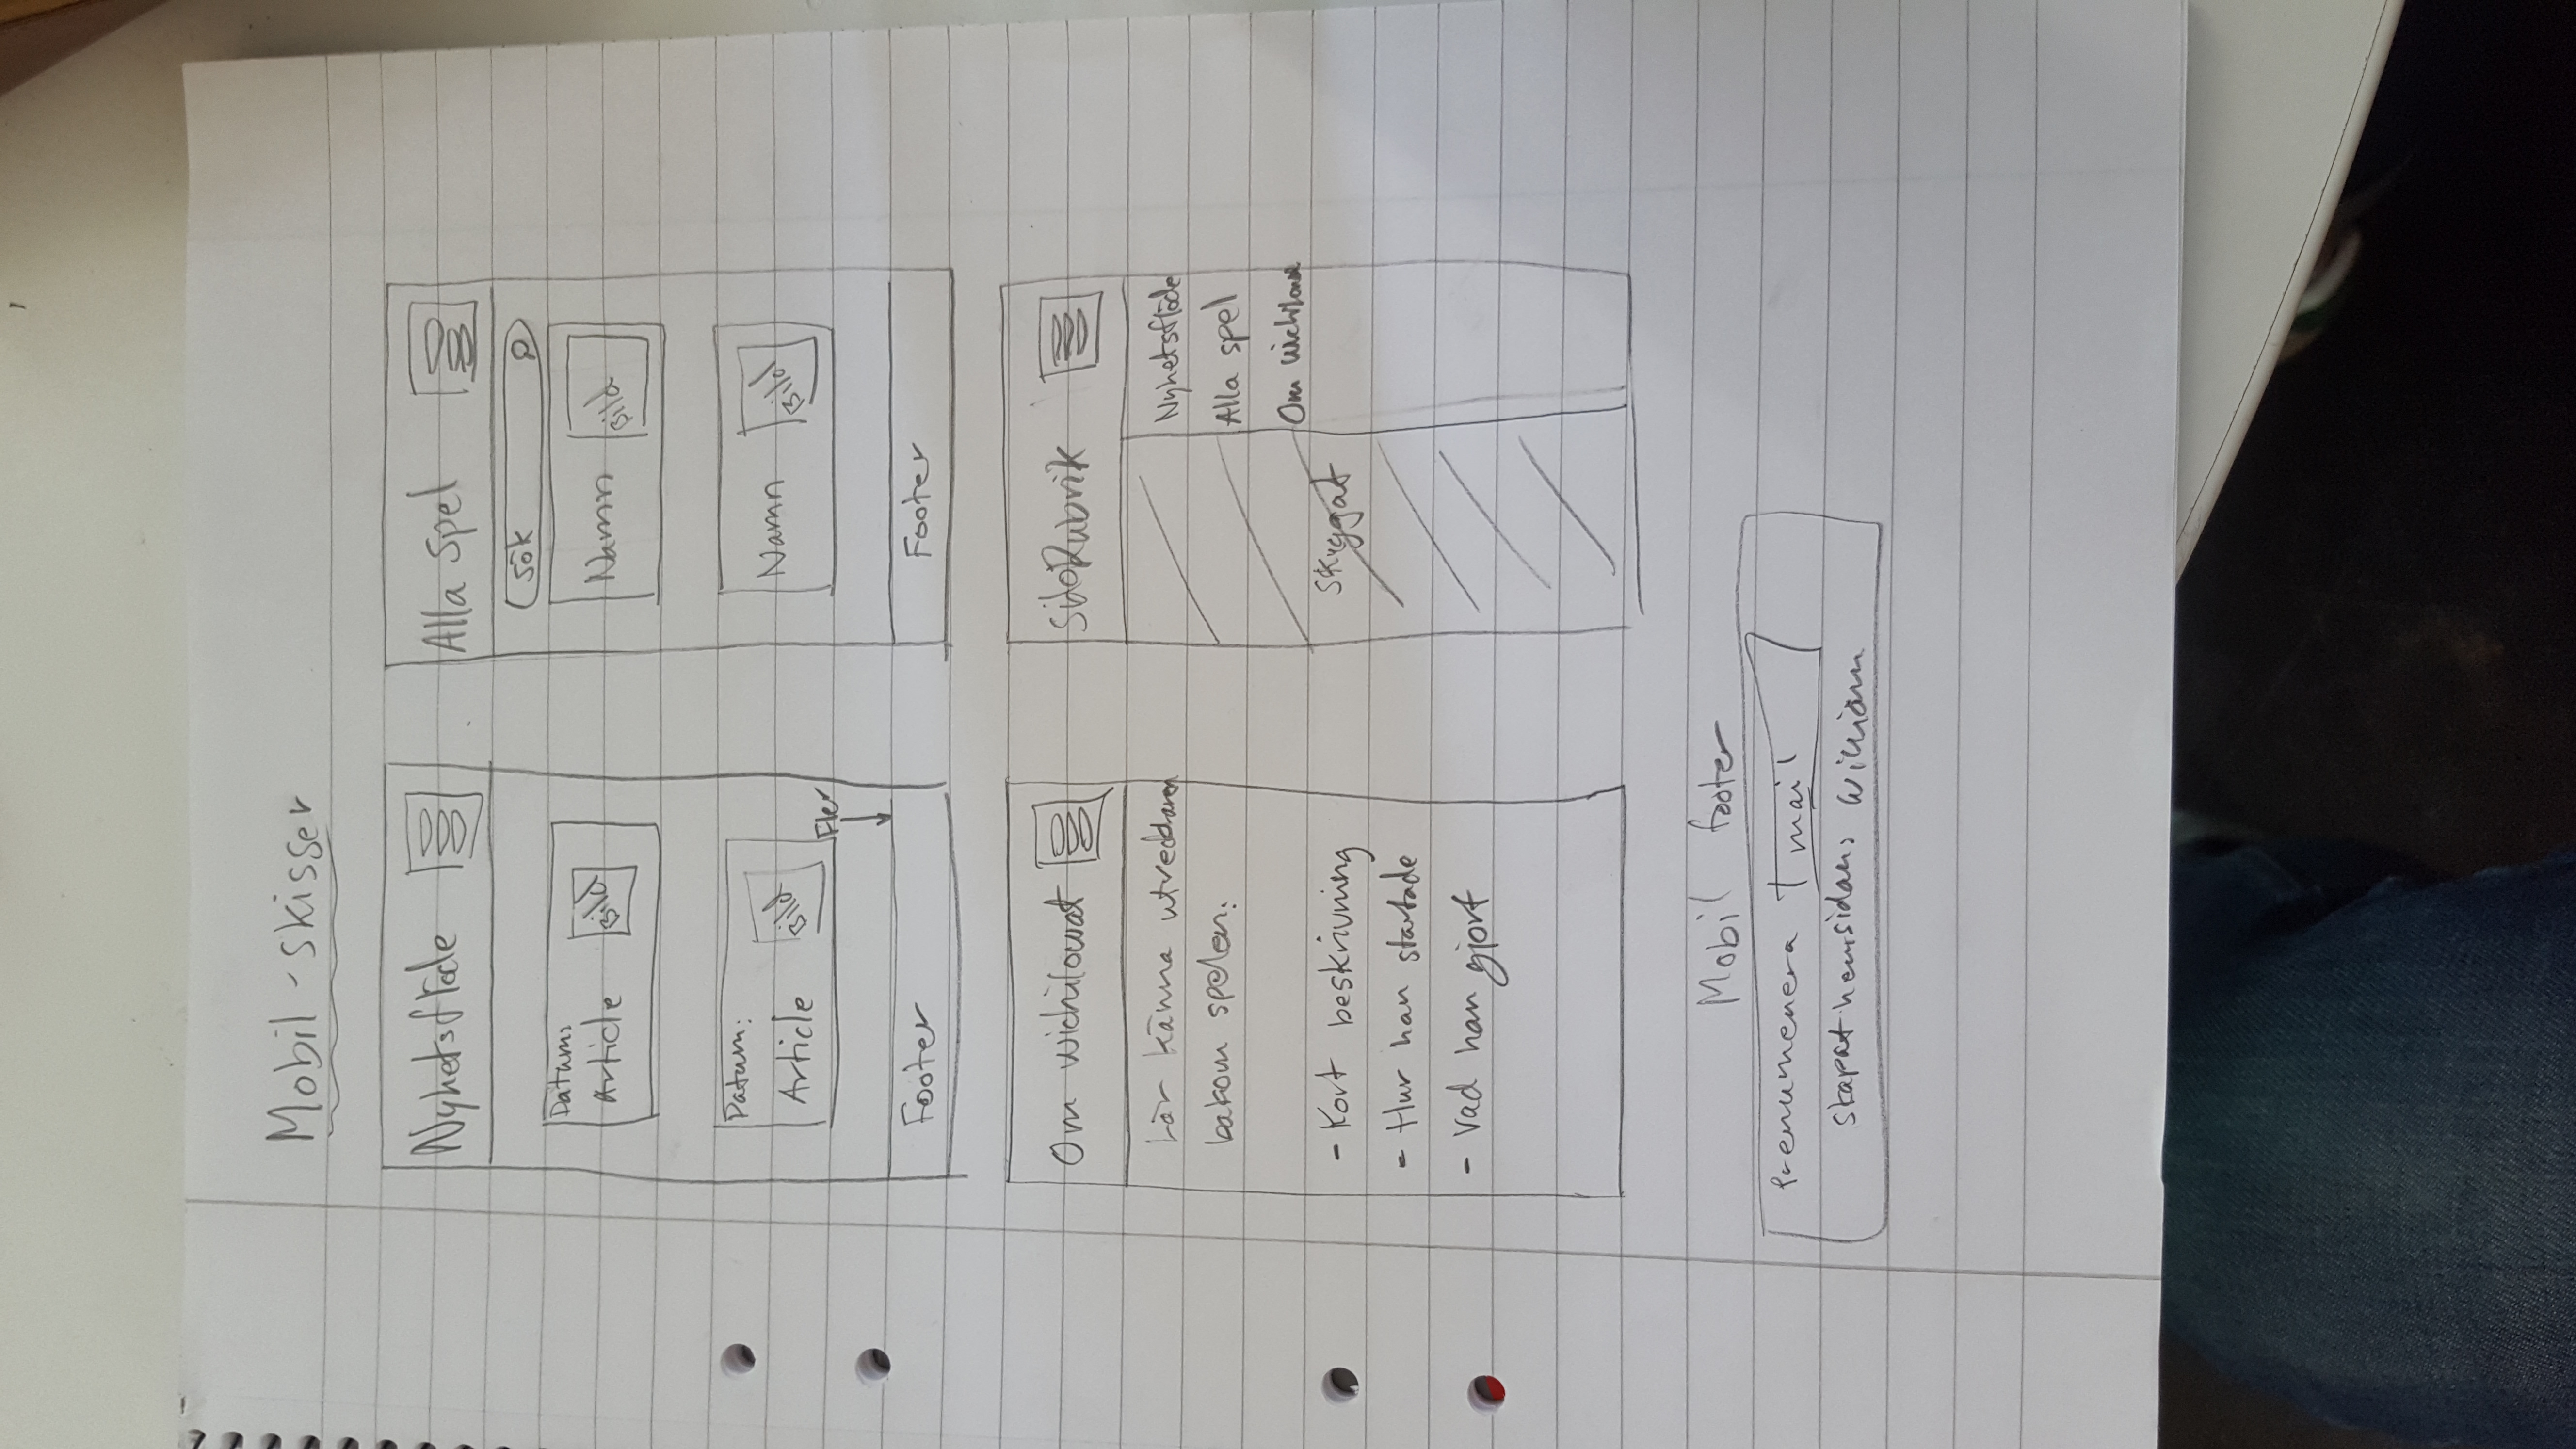 Mobil - skisser
Nyhetsflöde
Datum:
Article
Bild
Datum:
Article
Bild
Fler
Footer
Alla Spel
Sök
Namn
Bild
Namn
Bild
Footer
Om wichilowat
Lär känna
bakom spelen:
- Kort beskrivning
- Hur han startade
- Vad han gjort
SidoRubrik
Nyhetsflöde
Alla spel
Om
Skuggat
Mobil footer
Prenumenera mail
Skapat hemsidan: William